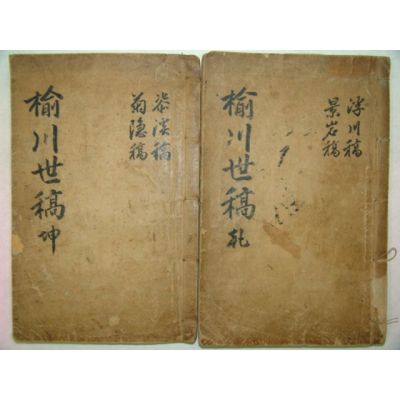 川稿
景岩稿
榆川世稿 乾
溪稿
菊隐稿
榆川世稿 坤